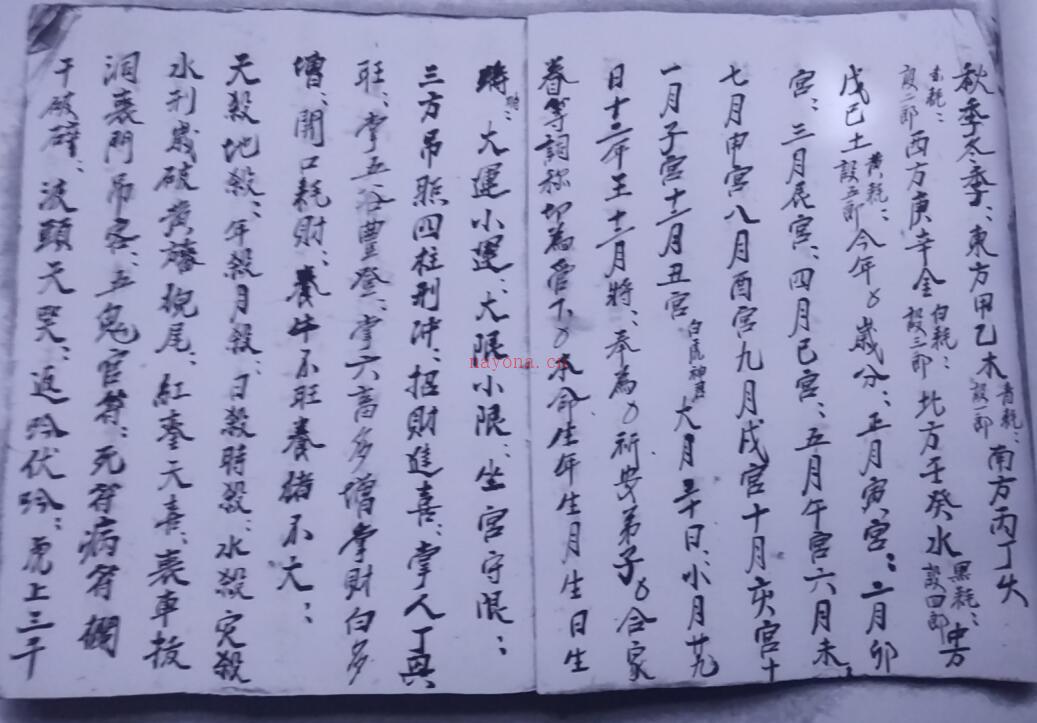 秋季冬季：東方甲乙木青耗：設一郎南方丙丁火
赤耗：設二郎西方庚辛金白耗：設三郎北方壬癸水黑耗：設四郎中方
戊己土黄耗：設五郎今年〤歲分：正月寅宫：二月卯
宫：三月辰宫：四月巳宫：五月午宫六月未
七月申宫八月酉宫九月戌宫十月亥宫十
一月子宫十二月丑宫白虎神君大月三十日、小月廿九
日十二年王十二月將：奉為〤祈安弟子〤合家
眷等詞称切為管下〤本命生年生月生日生
時：大運小運：大限小限：坐宫守限：
三方吊照四柱刑冲：招財進喜：掌人丁興
旺：掌五谷豐登：掌六畜多增掌財白多
增：開口耗財：養牛不旺養猪不大：
天殺地殺：年殺月殺：日殺時殺：水殺
水刑歲破黄旛豹尾：紅鸞天喜：
門吊客：五鬼官符：死符病符
破碎：披頭天哭：返吟伏吟：虎上三千
nayona.cn